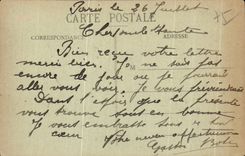 Paris le 26 Juillet
CARTE POSTALE
CORRESPONDANCE ADRESSE
Cher oncle Tante
Bien reçu votre lettre
merci bien. Je ne sais pas
encore le jour ou je pourrai
aller vous voir. Je vous préviendrai
Dans l'espoir que la présente
vous trouve tous en bonne
Je vous embrasse tous de
cœur Votre neveu affectueux
Gaston